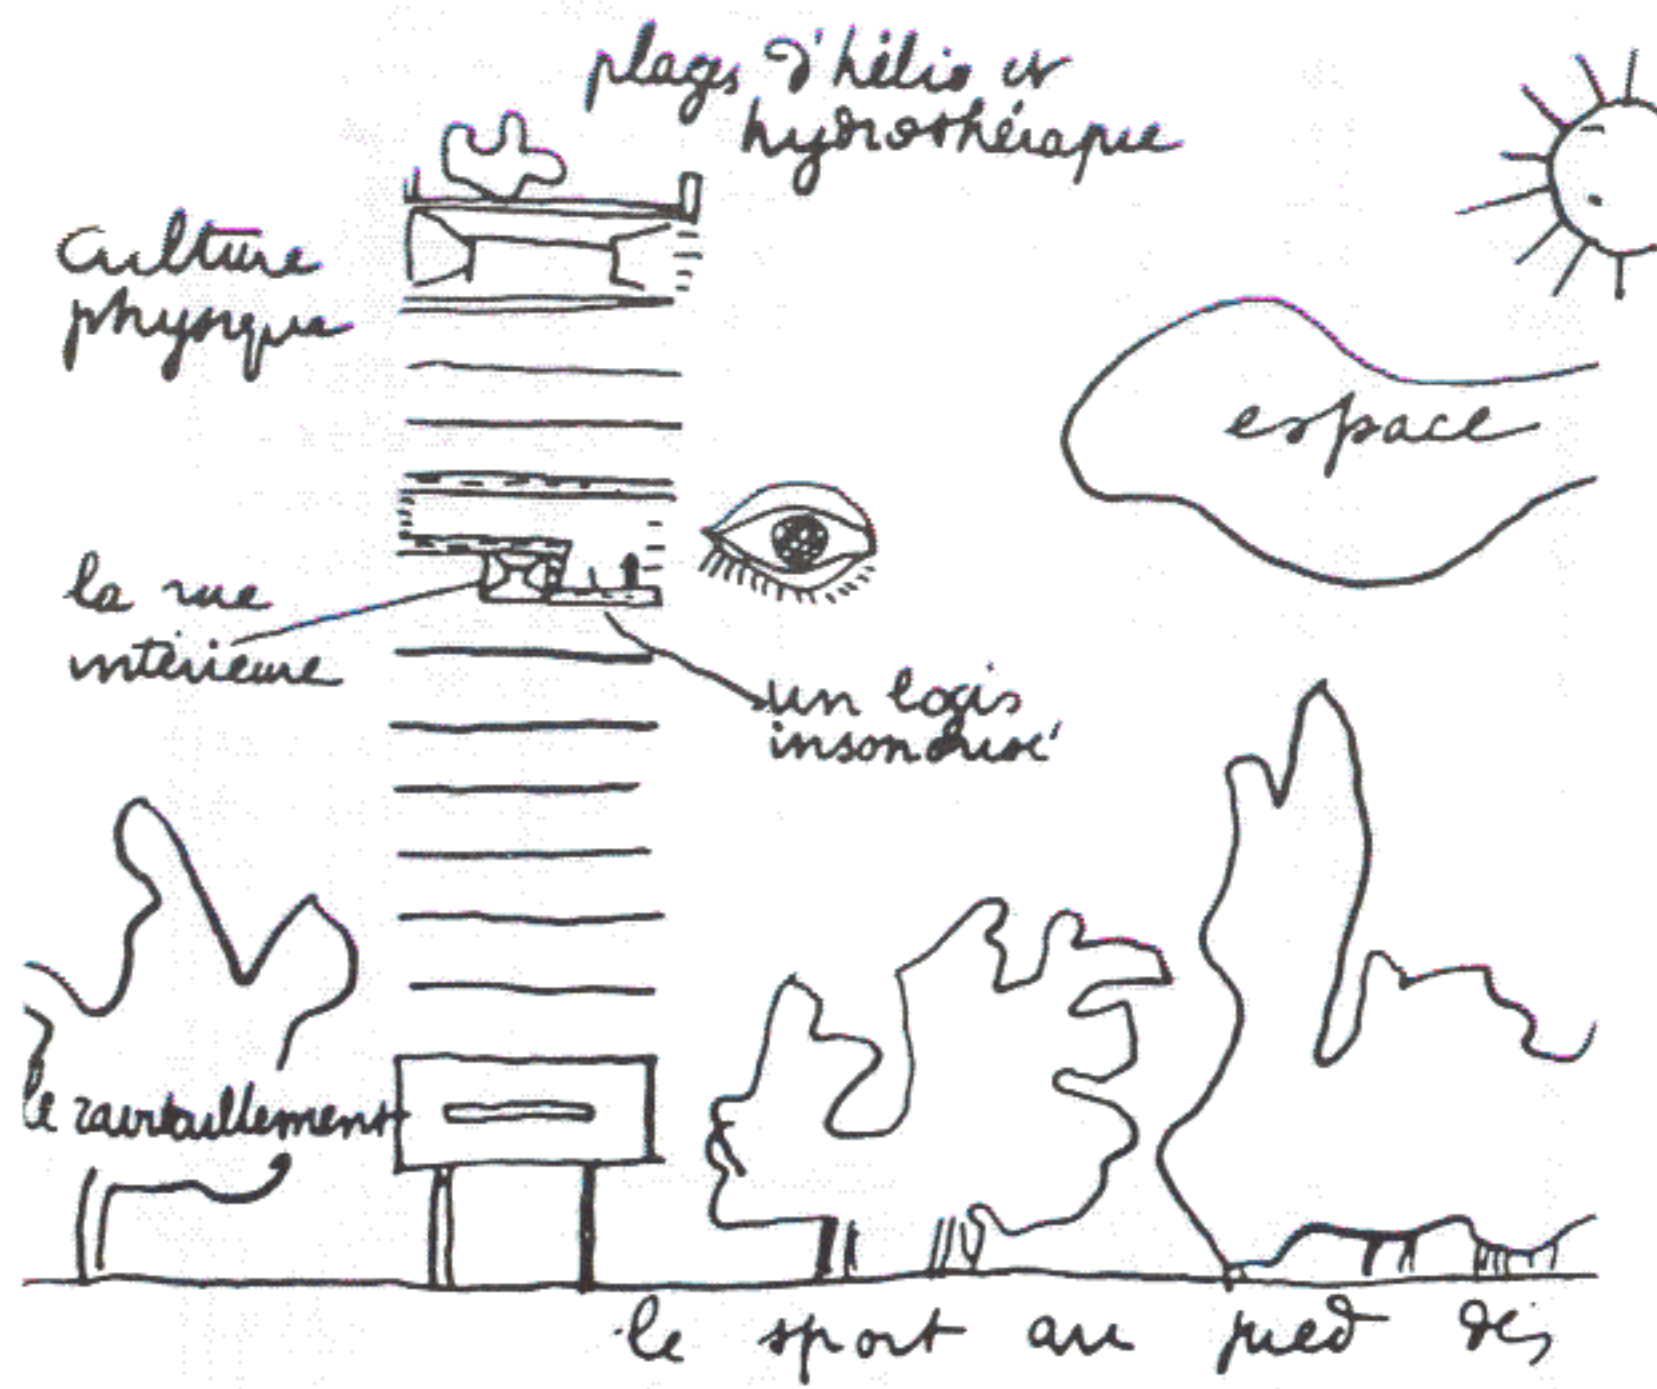 plages d'hélio et
hydrothérapie
Culture
physique
espace
la rue
intérieure
un logis
insonorisé
le ravitaillement
le sport au pied des